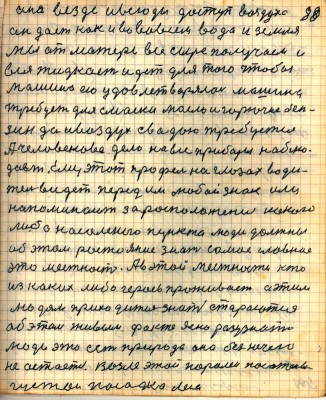 она везде и всюду доступ воздуха 88
он дает как и во вовсем вода и земля
мы от матере все сире получаем и
вся жидкает идет для того чтобы
машина его удовлетворялак машина
требует для смаски масло и горючие бен-
зин да и воздух с вадою требуется
А человеково дело на все приборы наблю-
дать. Ему этот профел на глазах води-
тел видет перед им любой знак или
напоминают за росположение какого
либо населеного пункта люди должны
об этом ростояние знат самое главное
это местност. Аб этой местность кто
из каких либо героев проживает с этим
людям приходится знат стараются
об этом живым факте ясно разузнать
люди это ест природа она без ничего
не астается. Возле этой дороги
густая посадка леса